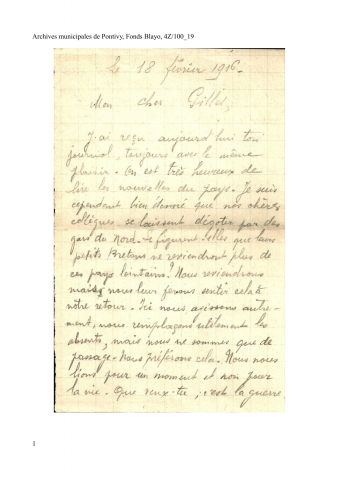 Archives municipales de Pontivy, Fonds Blayo, 4Z/100_19
Le 18 février 1916.
Mon cher Gillet,
J'ai reçu aujourd'hui ton
journal, toujours avec le même
plaisir. On est très heureux de
lire les nouvelles du pays. Je suis
cependant bien étonné que nos chères
collègues se laissent dégoter par des
gars du Nord. Se figurent-elles que leurs
petits Bretons ne reviendront plus de
ces pays lointains? Nous reviendrons
mais nous leur ferons sentir cela à
notre retour. Ici nous agissons autre-
ment, nous remplaçons utilement les
absents, mais nous ne sommes que de
passage. Nous préférons cela. Nous nous
lions pour un moment et non pour
la vie. Que veux-tu, c'est la guerre
1